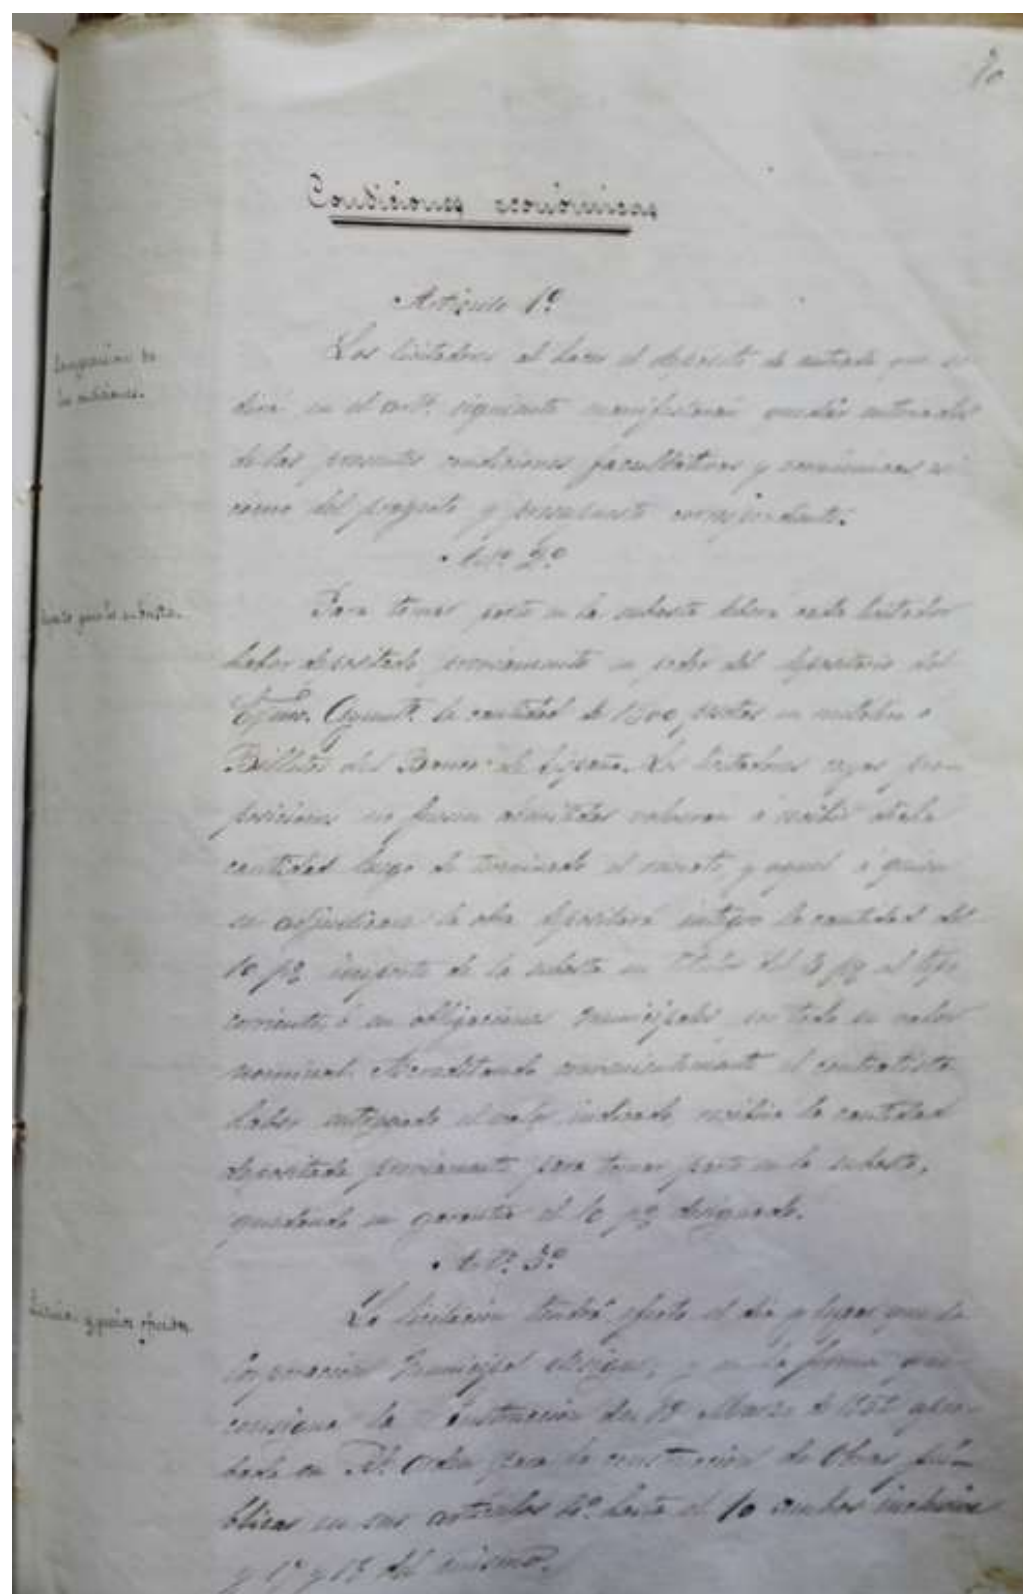 Condiciones económicas
Artículo 1º
Los licitadores al hacer el depósito de entrada que se
dirá en el artº siguiente manifestarán quedar enterados
de las presentes condiciones facultativas y económicas así
como del proyecto y presupuesto correspondiente.
las condiciones.
Artº 2º
Para tomar parte en la subasta deberá cada licitador
haber depositado previamente en poder del depositario del
Excmo. Ayuntº la cantidad de 1500 pesetas en metálico o
Billetes del Banco de España. Los licitadores cuyas pro-
posiciones no fueren admitidas volverán a recibir dicha
cantidad luego de terminado el remate y aquel a quien
se adjudicare la obra depositará íntegro la cantidad del
10 p% importe de la subasta en títulos del 3 p% al tipo
corriente, ó en obligaciones municipales por todo su valor
nominal. Acreditando convenientemente el contratista
haber entregado el valor indicado recibirá la cantidad
depositada previamente para tomar parte en la subasta,
quedando en garantía el 10 p% designado.
Artº 3º
La licitación tendrá efecto el día y lugar que la
Corporación Municipal designe, y en la forma que
consigna la Instrucción del 18 Marzo de 1852 apro-
bada en Rl. Orden para la construcción de Obras pú-
blicas en sus artículos 4º hasta el 10 ambos inclusive
y del mismo.